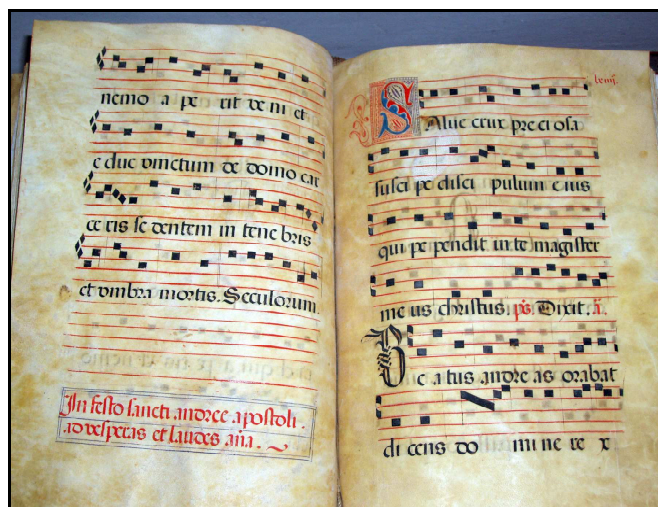 nemo a pe rit ve ni et
e duc vinctum de domo car
ce ris se dentem in tene bris
et vmbra mortis. Seculorum.
In festo sancti andree apostoli.
ad vesperas et laudes aña.
lxiiij.
Salue crux pre ci osa
susci pe disci pulum eius
qui pe pendit in te magister
me us christus ps Dixit. a.
Be a tus andre as orabat
di cens do mi ne re x